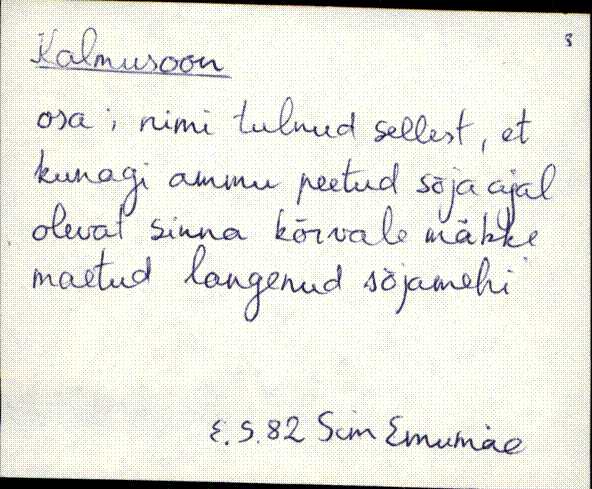 8
Kalmusoon
osa; nimi tulnud sellest, et
kunagi ammu peetud sõja ajal
olevat sinna kõrvale mäkke
maetud langenud sõjamehi
E. S. 82 Sim Emumäe